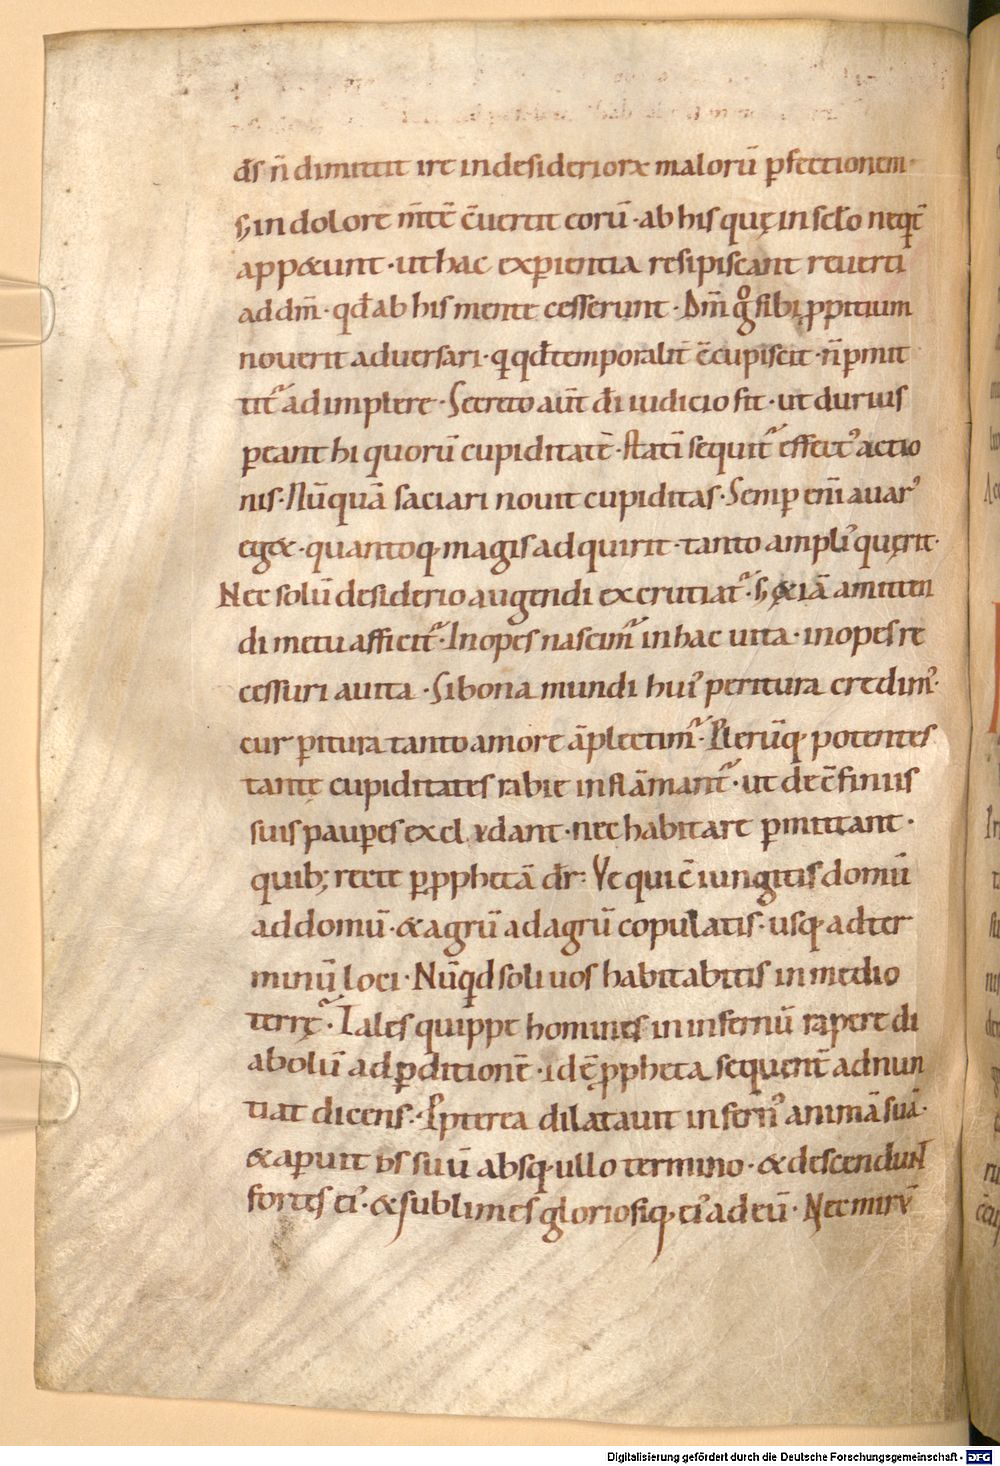 d̄s n̄ dimittit ire in desideriorꝝ malorū ꝑfectionem·
s; in dolore m̄tē c̄uertit eorū · ab his quę in sc̄lo neq̄t
app&unt · ut hac experientia resipiscant reuerti
ad dm̄ · qđ ab his mente cesserunt · Dm̄ g̊ sibi ꝓpitium
nouerit aduersari · qͥ qđ temporalit̄ c̄cupiscit · n̄ ꝑmit
titᷣ adimplere · Secreto aut̄ dī iudicio fit · ut durius
ꝑeant hi quorū cupiditatē · statī sequitᷣ effectꝰ actio
nis · Nūquā saciari nouit cupiditas · Semꝑ enī auarꝰ
eg& · quantoq; magis adquirit · tanto ampliꝰ quęrit ·
Nec solū desiderio augendi excrutiatᷣ · s; &iā amitten
di metu afficitᷣ · Inopes nascimᷣ in hac uita · inopes re
cessuri a uita · Si bona mundi huiꝰ peritura credimꝰ ·
cur ꝑitura tanto amore āplectimᷣ · Plerūq; potentes
tantę cupiditates rabie inflāmantᷣ · ut de c̄finiis
suis pauꝑes excludant · nec habitare ꝑmittant ·
quib; recte ꝑ ꝓphetā dr̄: Ve qui c̄iungitis domū
ad domū · & agrū ad agrū copulatis · usq; ad ter
minū loci · Nūqͥd soli uos habitabitis in medio
terrę · Tales quippe homines in infernū rapere di
abolū ad ꝑditionē · idē ꝓpheta sequent̄ adnun
tiat dicens · Ꝓpterea dilatauit infernꝰ animā suā ·
& aꝑuit os suū absq; ullo termino · & descendunt
fortes eiꝰ · & sublimes gloriosiq; eiꝰ ad eū · Nec mirū
Digitalisierung gefördert durch die Deutsche Forschungsgemeinschaft - DFG